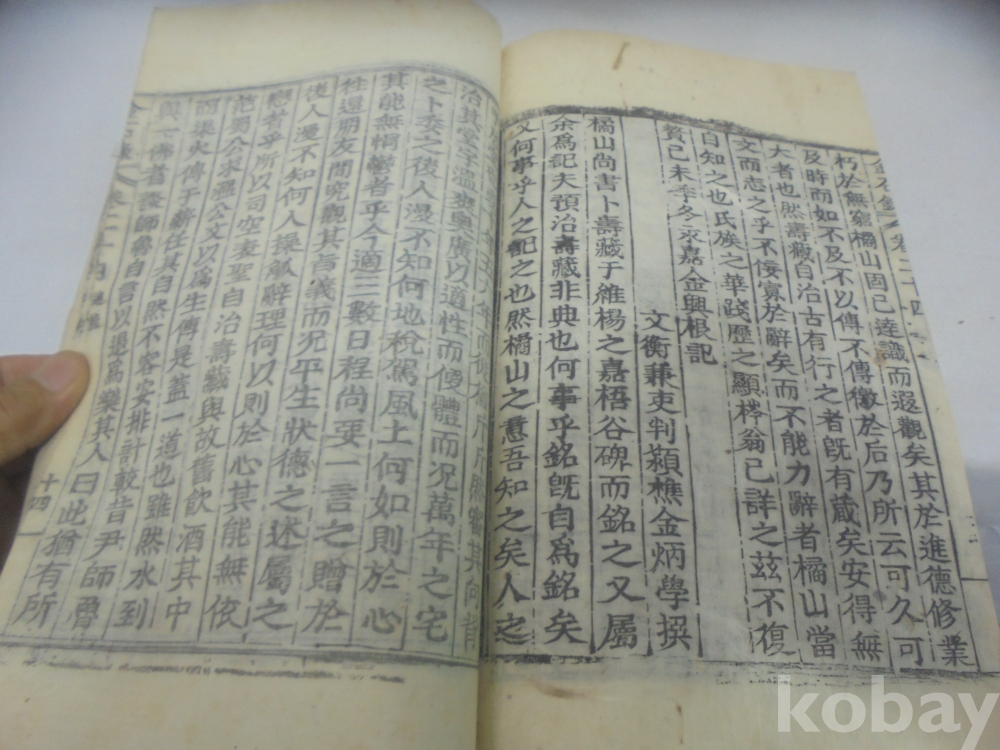 朽於無窮橘山固已達識而遐觀矣其於進德修業
及時而如不及不以傳不傳徵於后乃所云可久可
大者也然壽藏自治古有行之者旣有葳矣安得無
文而志之乎不佞寡於辭矣而不能力辭者橘山當
自知之也氏族之華踐歷之顯梣翁已詳之玆不復
贅己未季冬永嘉金興根記
文衡兼吏判潁樵金炳學撰
橘山尚書卜壽藏于維楊之嘉梧谷碑而銘之又屬
余爲記夫預治壽藏非典也何事乎銘旣自爲銘矣
又何事乎人之記之也然橘山之意吾知之矣人之
治其堂宇溫奧廣以適性而便體而况萬年之宅
之卜委之後人漫不知何地稅駕風土何如則於心
其能無惆
者乎今適三數日程尚要一言之贈於
往還朋友間究觀其
議而况平生狀德之述屬之
後人漫不知何人操觚辭理何以則於心其能無依
戀者乎所以司空表聖自治壽藏與故舊飮酒其中
范蜀公求溫公文以爲生傳是蓋一道也雖然水到
而渠火傳于薪任其自然不容安排計較昔尹師魯
與一佛者談師魯自言以退爲樂其人曰此猶有所
十四
kobay